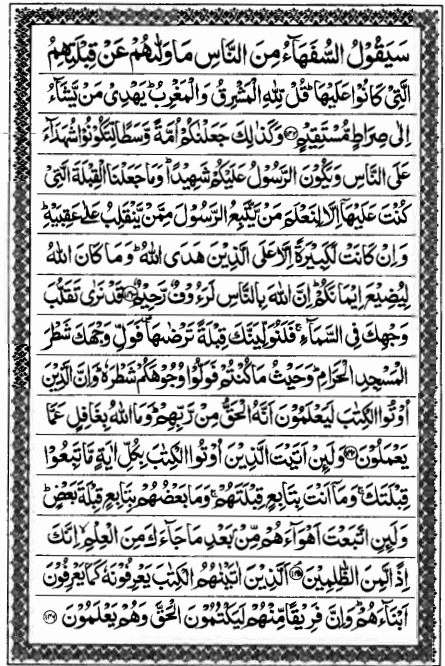 سَيَقُوْلُ السُّفَهَآءُ مِنَ النَّاسِ مَا وَلّٰىهُمْ عَنْ قِبْلَتِهِمُ
الَّتِیْ كَانُوْا عَلَيْهَا ؕ قُلْ لِّلّٰهِ الْمَشْرِقُ وَالْمَغْرِبُ ؕ يَهْدِیْ مَنْ يَّشَآءُ
اِلٰی صِرَاطٍ مُّسْتَقِيْمٍ ﴿۱۴۲﴾ وَكَذٰلِكَ جَعَلْنٰكُمْ اُمَّةً وَّسَطًا لِّتَكُوْنُوْا شُهَدَآءَ
عَلَی النَّاسِ وَيَكُوْنَ الرَّسُوْلُ عَلَيْكُمْ شَهِيْدًا ؕ وَمَا جَعَلْنَا الْقِبْلَةَ الَّتِیْ
كُنْتَ عَلَيْهَاۤ اِلَّا لِنَعْلَمَ مَنْ يَّتَّبِعُ الرَّسُوْلَ مِمَّنْ يَّنْقَلِبُ عَلٰی عَقِبَيْهِ ؕ
وَاِنْ كَانَتْ لَكَبِيْرَةً اِلَّا عَلَی الَّذِيْنَ هَدَی اللّٰهُ ؕ وَمَا كَانَ اللّٰهُ
لِيُضِيْعَ اِيْمَانَكُمْ ؕ اِنَّ اللّٰهَ بِالنَّاسِ لَرَءُوْفٌ رَّحِيْمٌ ﴿۱۴۳﴾ قَدْ نَرٰی تَقَلُّبَ
وَجْهِكَ فِی السَّمَآءِ ۚ فَلَنُوَلِّيَنَّكَ قِبْلَةً تَرْضٰىهَا ۪ فَوَلِّ وَجْهَكَ شَطْرَ
الْمَسْجِدِ الْحَرَامِ ؕ وَحَيْثُ مَا كُنْتُمْ فَوَلُّوْا وُجُوْهَكُمْ شَطْرَهٗ ؕ وَاِنَّ الَّذِيْنَ
اُوْتُوا الْكِتٰبَ لَيَعْلَمُوْنَ اَنَّهُ الْحَقُّ مِنْ رَّبِّهِمْ ؕ وَمَا اللّٰهُ بِغَافِلٍ عَمَّا
يَعْمَلُوْنَ ﴿۱۴۴﴾ وَلَئِنْ اَتَيْتَ الَّذِيْنَ اُوْتُوا الْكِتٰبَ بِكُلِّ اٰيَةٍ مَّا تَبِعُوْا
قِبْلَتَكَ ۚ وَمَاۤ اَنْتَ بِتَابِعٍ قِبْلَتَهُمْ ۚ وَمَا بَعْضُهُمْ بِتَابِعٍ قِبْلَةَ بَعْضٍ ؕ
وَلَئِنِ اتَّبَعْتَ اَهْوَآءَهُمْ مِّنْۢ بَعْدِ مَا جَآءَكَ مِنَ الْعِلْمِ ۙ اِنَّكَ
اِذًا لَّمِنَ الظّٰلِمِيْنَ ﴿۱۴۵﴾ اَلَّذِيْنَ اٰتَيْنٰهُمُ الْكِتٰبَ يَعْرِفُوْنَهٗ كَمَا يَعْرِفُوْنَ
اَبْنَآءَهُمْ ؕ وَاِنَّ فَرِيْقًا مِّنْهُمْ لَيَكْتُمُوْنَ الْحَقَّ وَهُمْ يَعْلَمُوْنَ ﴿۱۴۶﴾